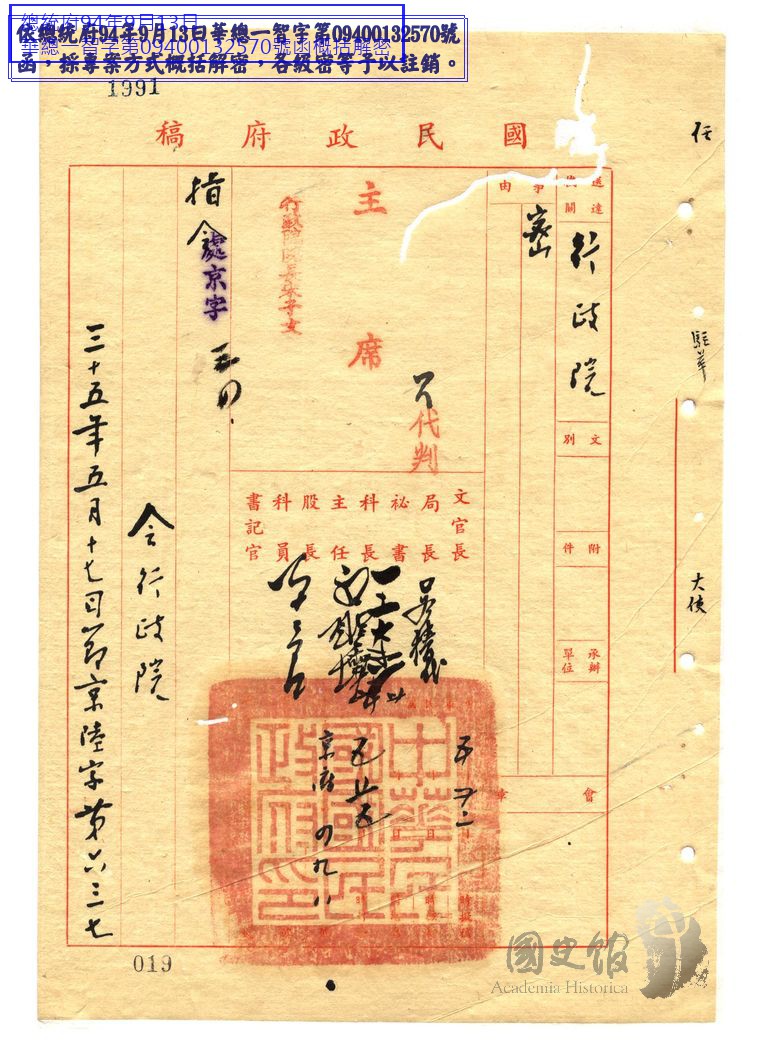 總統府94年9月13日
華總一智字第09400132570號函概括解密
依總統府94年9月13日華總一智字第09400132570號
函，採專案方式概括解密，各級密等予以註銷。
1991
國民政府稿
任
駐華
大使
送達機關
行政院
文別
附件
承辦單位
事由
密
會章
主席
代判
行政院院長宋子文
文官長
局長
祕書
科長
主任
股長
科員
書記官
指令
處京字
令行政院
三十五年五月十七日節京陸字第六三七
中華民國國民政府印
京府
019
國史館
Academia Historica